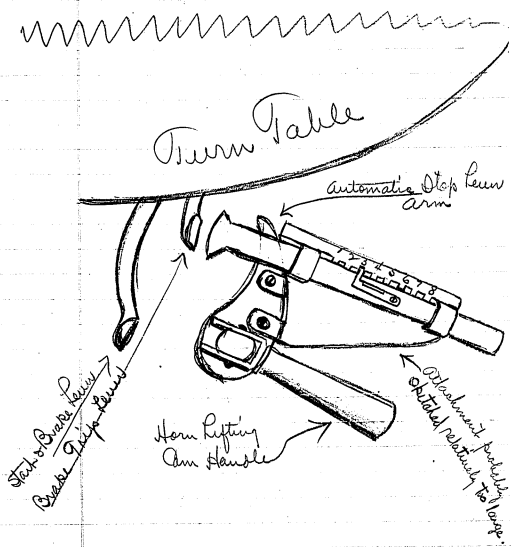 Turn Table
Automatic Stop Lever
Arm
1 2 3 4 5 6 7 8
Start or Brake Lever
Brake Trip Lever
Horn Lifting
Cam Handle
Attachment probably
sketched relatively too large.